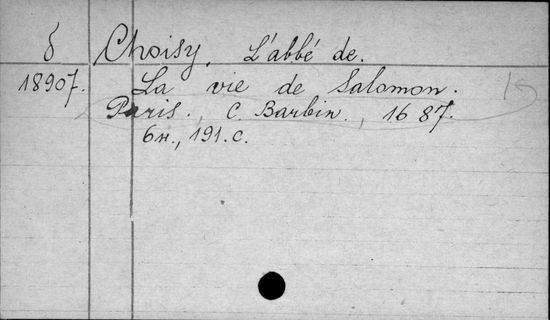 δ Choisy, L'abbé de.
18907. La vie de Salomon.
Paris, C. Barbin, 1687.
6н., 191.с.